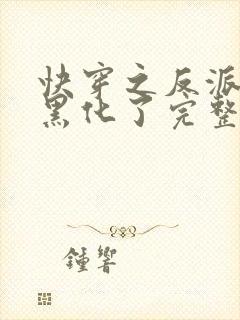 快穿之反派
黑化了完整
鍾響